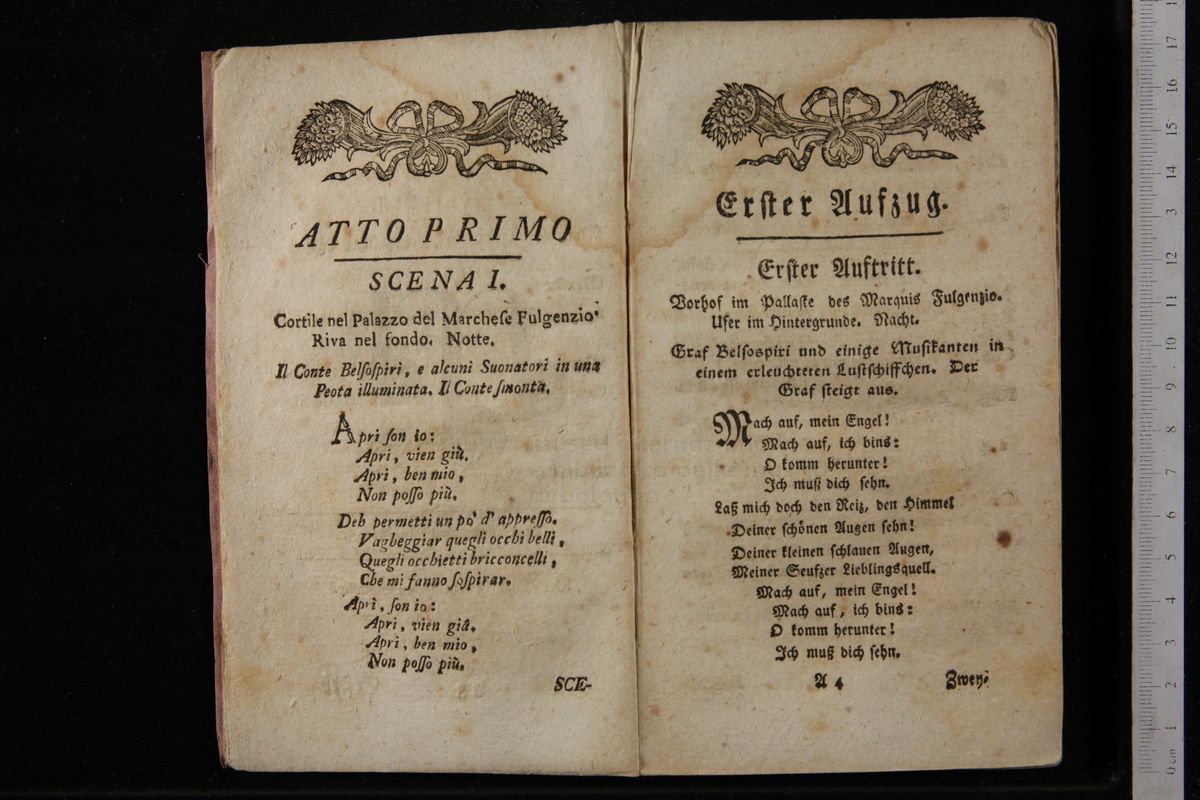 ATTO PRIMO
SCENA I.
Cortile nel Palazzo del Marcheſe Fulgenzio
Riva nel fondo. Notte.
Il Conte Belſoſpiri, e alcuni Suonatori in una
Peota illuminata. Il Conte ſmonta.
Apri ſon io:
Apri, vien giù.
Apri, ben mio,
Non poſſo più.
Deh permetti un pò d' appreſſo.
Vagheggiar quegli occhi belli,
Quegli occhietti bricconcelli,
Che mi fanno ſoſpirar.
Apri, ſon io:
Apri, vien giù.
Apri, ben mio,
Non poſſo più.
SCE-
Erſter Aufzug.
Erſter Auftritt.
Vorhof im Pallaſte des Marquis Fulgenzio.
Ufer im Hintergrunde. Nacht.
Graf Belſospiri und einige Muſikanten in
einem erleuchteten Luſtſchiffchen. Der
Graf ſteigt aus.
Mach auf, mein Engel!
Mach auf, ich bins:
O komm herunter!
Ich muß dich ſehn.
Laß mich doch den Reiz, den Himmel
Deiner ſchönen Augen ſehn!
Deiner kleinen ſchlauen Augen,
Meiner Seufzer Lieblingsquell.
Mach auf, mein Engel!
Mach auf, ich bins:
O komm herunter!
Ich muß dich ſehn.
A 4
Zwey-
0 cm 1 2 3 4 5 6 7 8 9 10 11 12 13 14 15 16 17